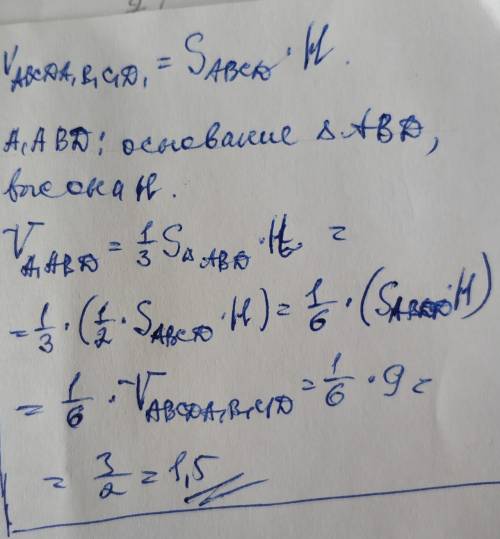 V_{ABCDA_1B_1C_1D_1} = S_{ABCD} · H.
A_1ABD: основание △ABD,
высота H.
V_{A_1ABD} = \frac{1}{3} S_{△ABD} · H =
= \frac{1}{3} · (\frac{1}{2} · S_{ABCD} · H) = \frac{1}{6} · (S_{ABCD} · H)
= \frac{1}{6} · V_{ABCDA_1B_1C_1D} = \frac{1}{6} · 9 =
= \frac{3}{2} = 1,5